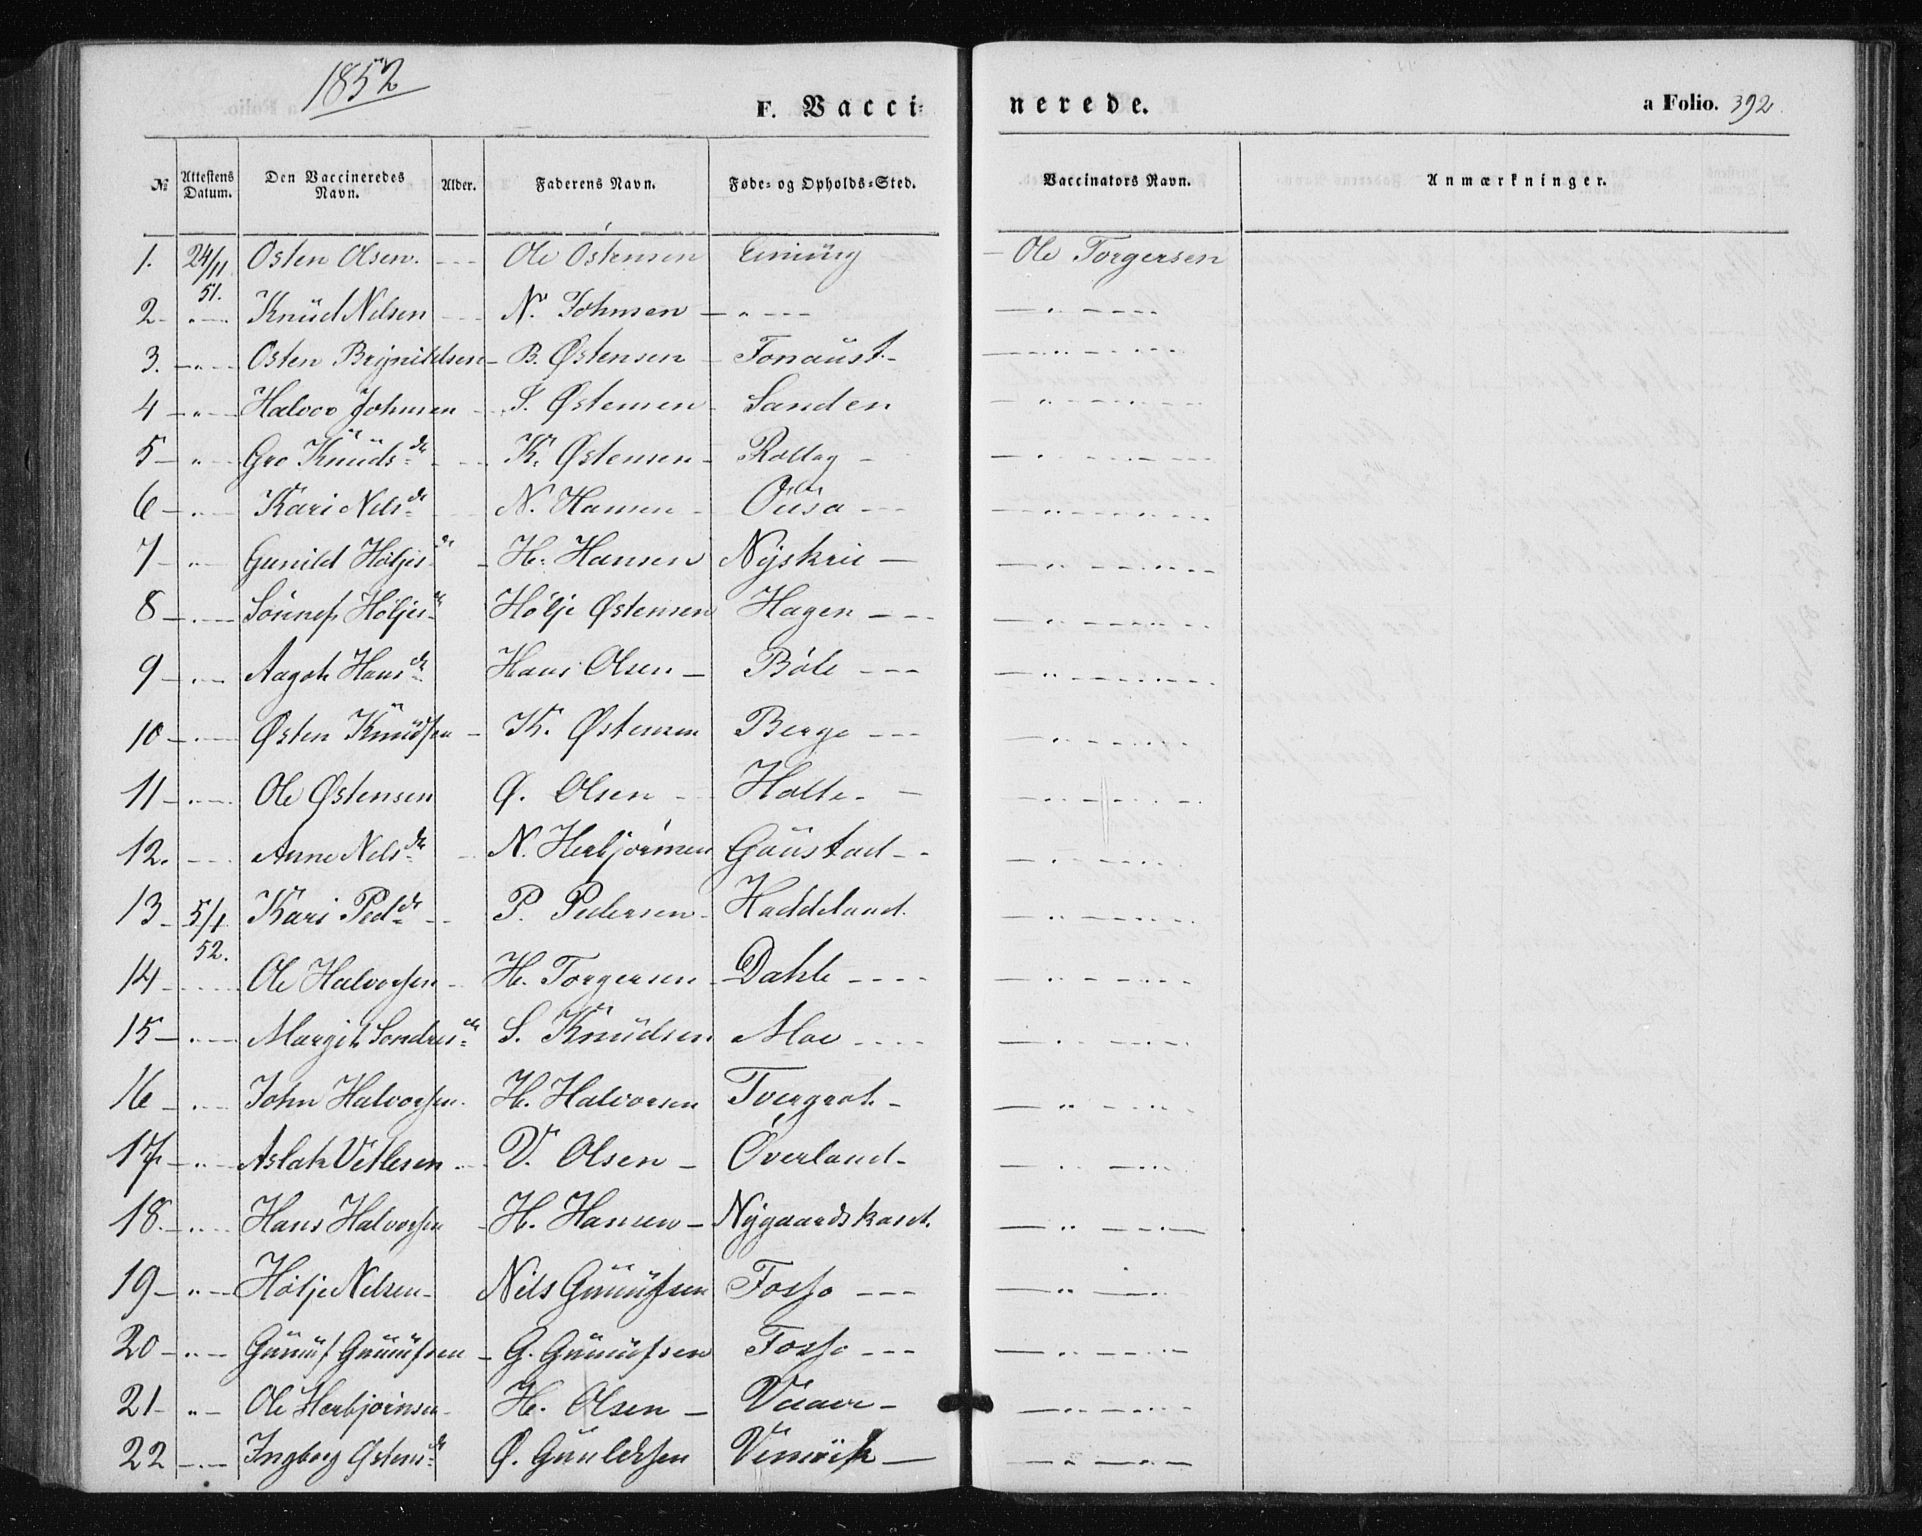 1852
F. Vacci- nerede. a Folio. 392.
№ Attestens Datum. Den Vaccineredes Navn. Alder. Faderens Navn. Føde- og Opholds-Sted. Vaccinators Navn. Anmærkninger.
1. 24/11 51. Østen Olsen. - - - Ole Østensen - Ole Torgersen
2 - " - Knüd Nilsen - - - N. Johnsen - " - - -
3. - " - Østen Brynildsen - B. Østensen - Fonaust -
4 - " - Halvor Johnsen - J. Østensen - Sanden
5 - " - Gro Knüdsdr - - K. Østensen - Rollag -
6 - " - Kari Nelsdr - - N. Hansen - Oüsa - -
7 - " - Gunild Høljesdr - H. Hansen Nyskrie -
8 - " - Sønnef Høljesdr Hølje Østensen Hagen - - -
9 - " - Aagot Hansdr Hans Olsen - Bøle - - -
10 - " - Østen Knüdsen - K. Østensen Berge - - -
11 - " - Ole Østensen Ø. Olsen - - Holte - -
12. - - - Anne Nelsdr - N. Herbjørnsen Gaüstad - -
13 - 5/1 52. Kari Peddr - - P. Pedersen - Haddeland.
14 - - - Ole Halvorsen - H. Torgersen - Dahle - - - -
15 - " - Margit Sondresdr S. Knüdsen Moe - - - -
16 - " - John Halvorsen - H. Halvorsen Tvergrot. -
17 - " - Aslak Vetlesen - V. Olsen - Øverland -
18. - " - Hans Halvorsen - H. Hansen - Nygaardskaset.
19 - " - Hølje Nelsen - Nils Günüfsen Fosso - - -
20 - " - Günüf Günüfsen - G. Günüfsen Fosso - - -
21 - " - Ole Herbjørnsen - H. Olsen -
22 - " - Ingborg Østensdr Ø. Gunleksen